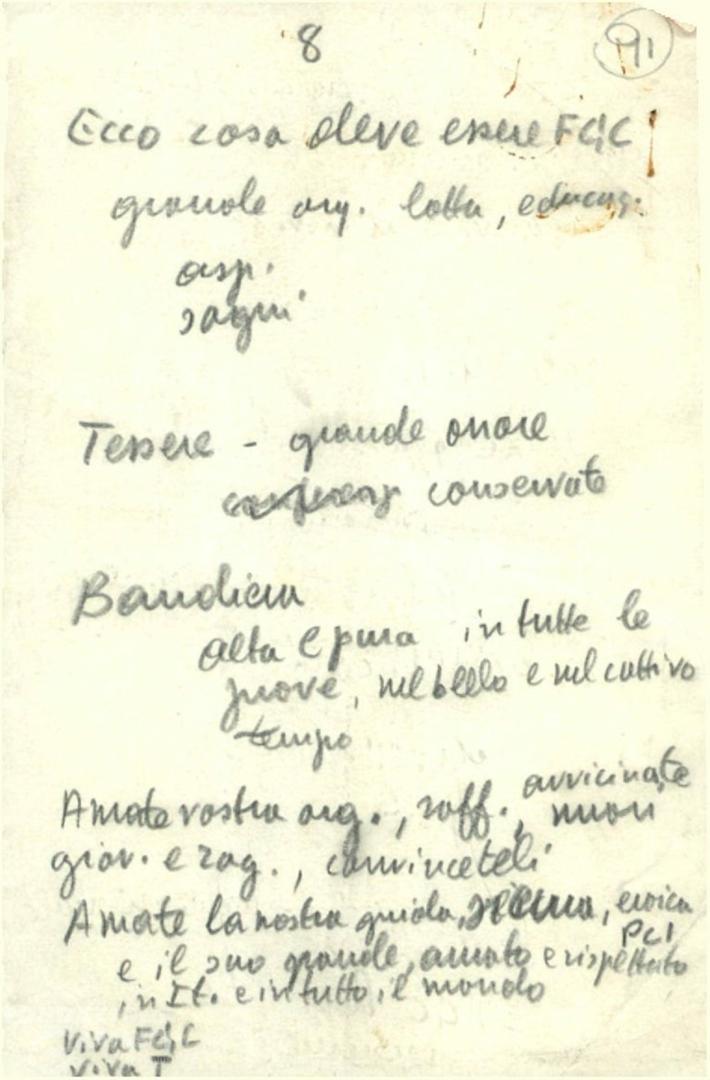 8
91
Ecco cosa deve essere FGC!
grande org. lotta, educaz.
asp.
sogni
Tessere - grande onore
conservate
Bandiera
alta e pura in tutte le
prove, nel bello e nel cattivo
tempo
Amate vostra org., raff., avvicinate
nuovi
giov. e rag., convinceteli
Amate la nostra guida, sicura, eroica
PCI
e il suo grande, amato e rispettato
in It. e in tutto il mondo
Viva FGC
Viva T